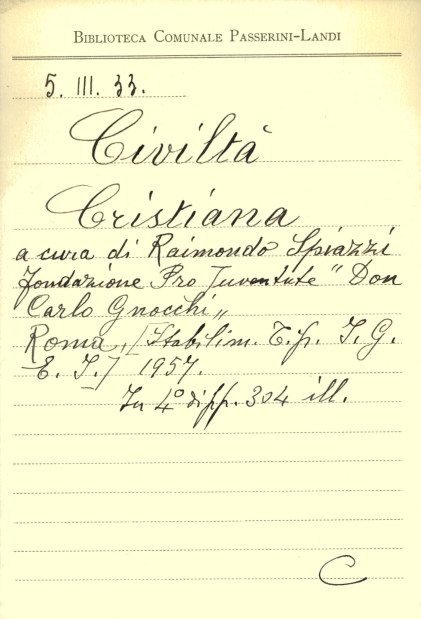 BIBLIOTECA COMUNALE PASSERINI-LANDI
5. III. 33.
Civiltà
Cristiana
a cura di Raimondo Spiazzi
fondazione Pro Juventute "Don
Carlo Gnocchi„
Roma, [Stabilim. Tip. I. G.
E. I.] 1957.
In 4° di pp. 304 ill.
C